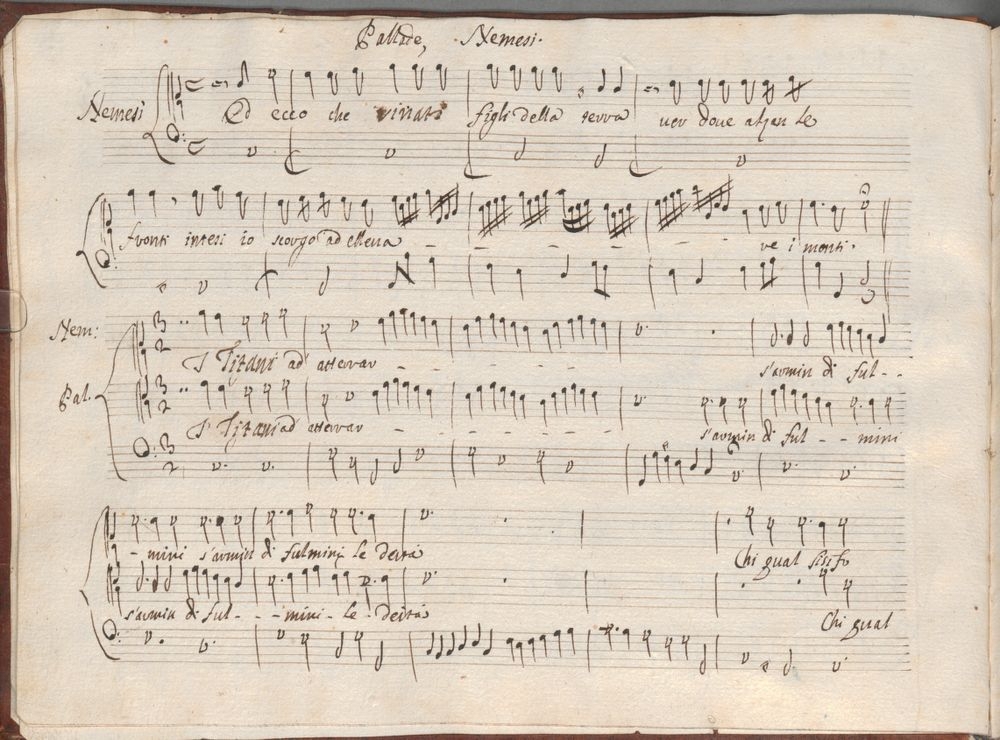 Pallade, Nemesi.
Nemesi Ed ecco che irritati figli della terra ver dove alzan le
fronti intesi io scorgo ad elleva - - - - - - - ve i monti.
Nem: I Titani ad atterrar - - - - - - - s'armin di ful - -
Pal. I Titani ad atterrar - - - - - - - s'armin di ful - - mini
- mini s'armin di fulmini le deità Chi qual sisifo
s'armin di ful - - - mini - le - deità Chi qual